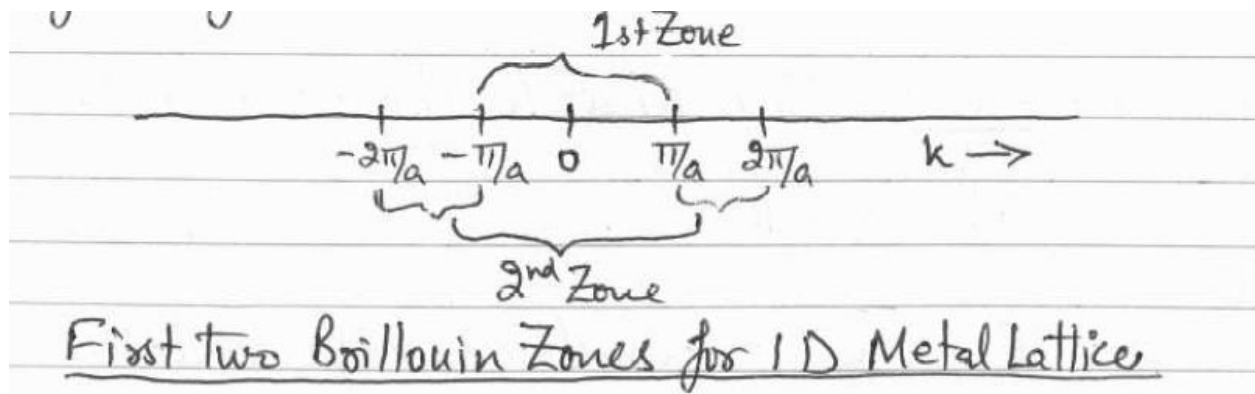 1st Zone
-2π/a -π/a 0 π/a 2π/a k →
2nd Zone
First two Brillouin Zones for 1D Metal Lattice